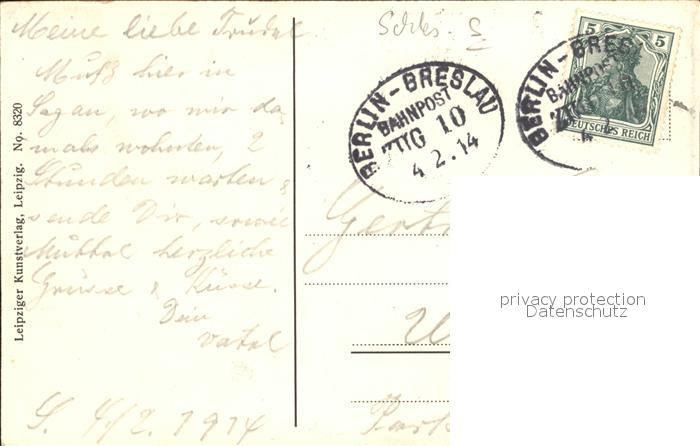 Meine liebe Trudel
Muß hier in
Sagan, wo wir da
mals wohnten, 2
Stunden warten &
sende Dir, sowie
Muttel herzliche
Grüsse & Küsse.
Dein
Vatel
S. 4/2. 1914
Leipziger Kunstverlag, Leipzig. No. 8320
BERLIN-BRESLAU
BAHNPOST
ZUG 10
4 2.14
BERLIN-BRES
BAHNPOST
ZUG
5 5
DEUTSCHES REICH
privacy protection
Datenschutz